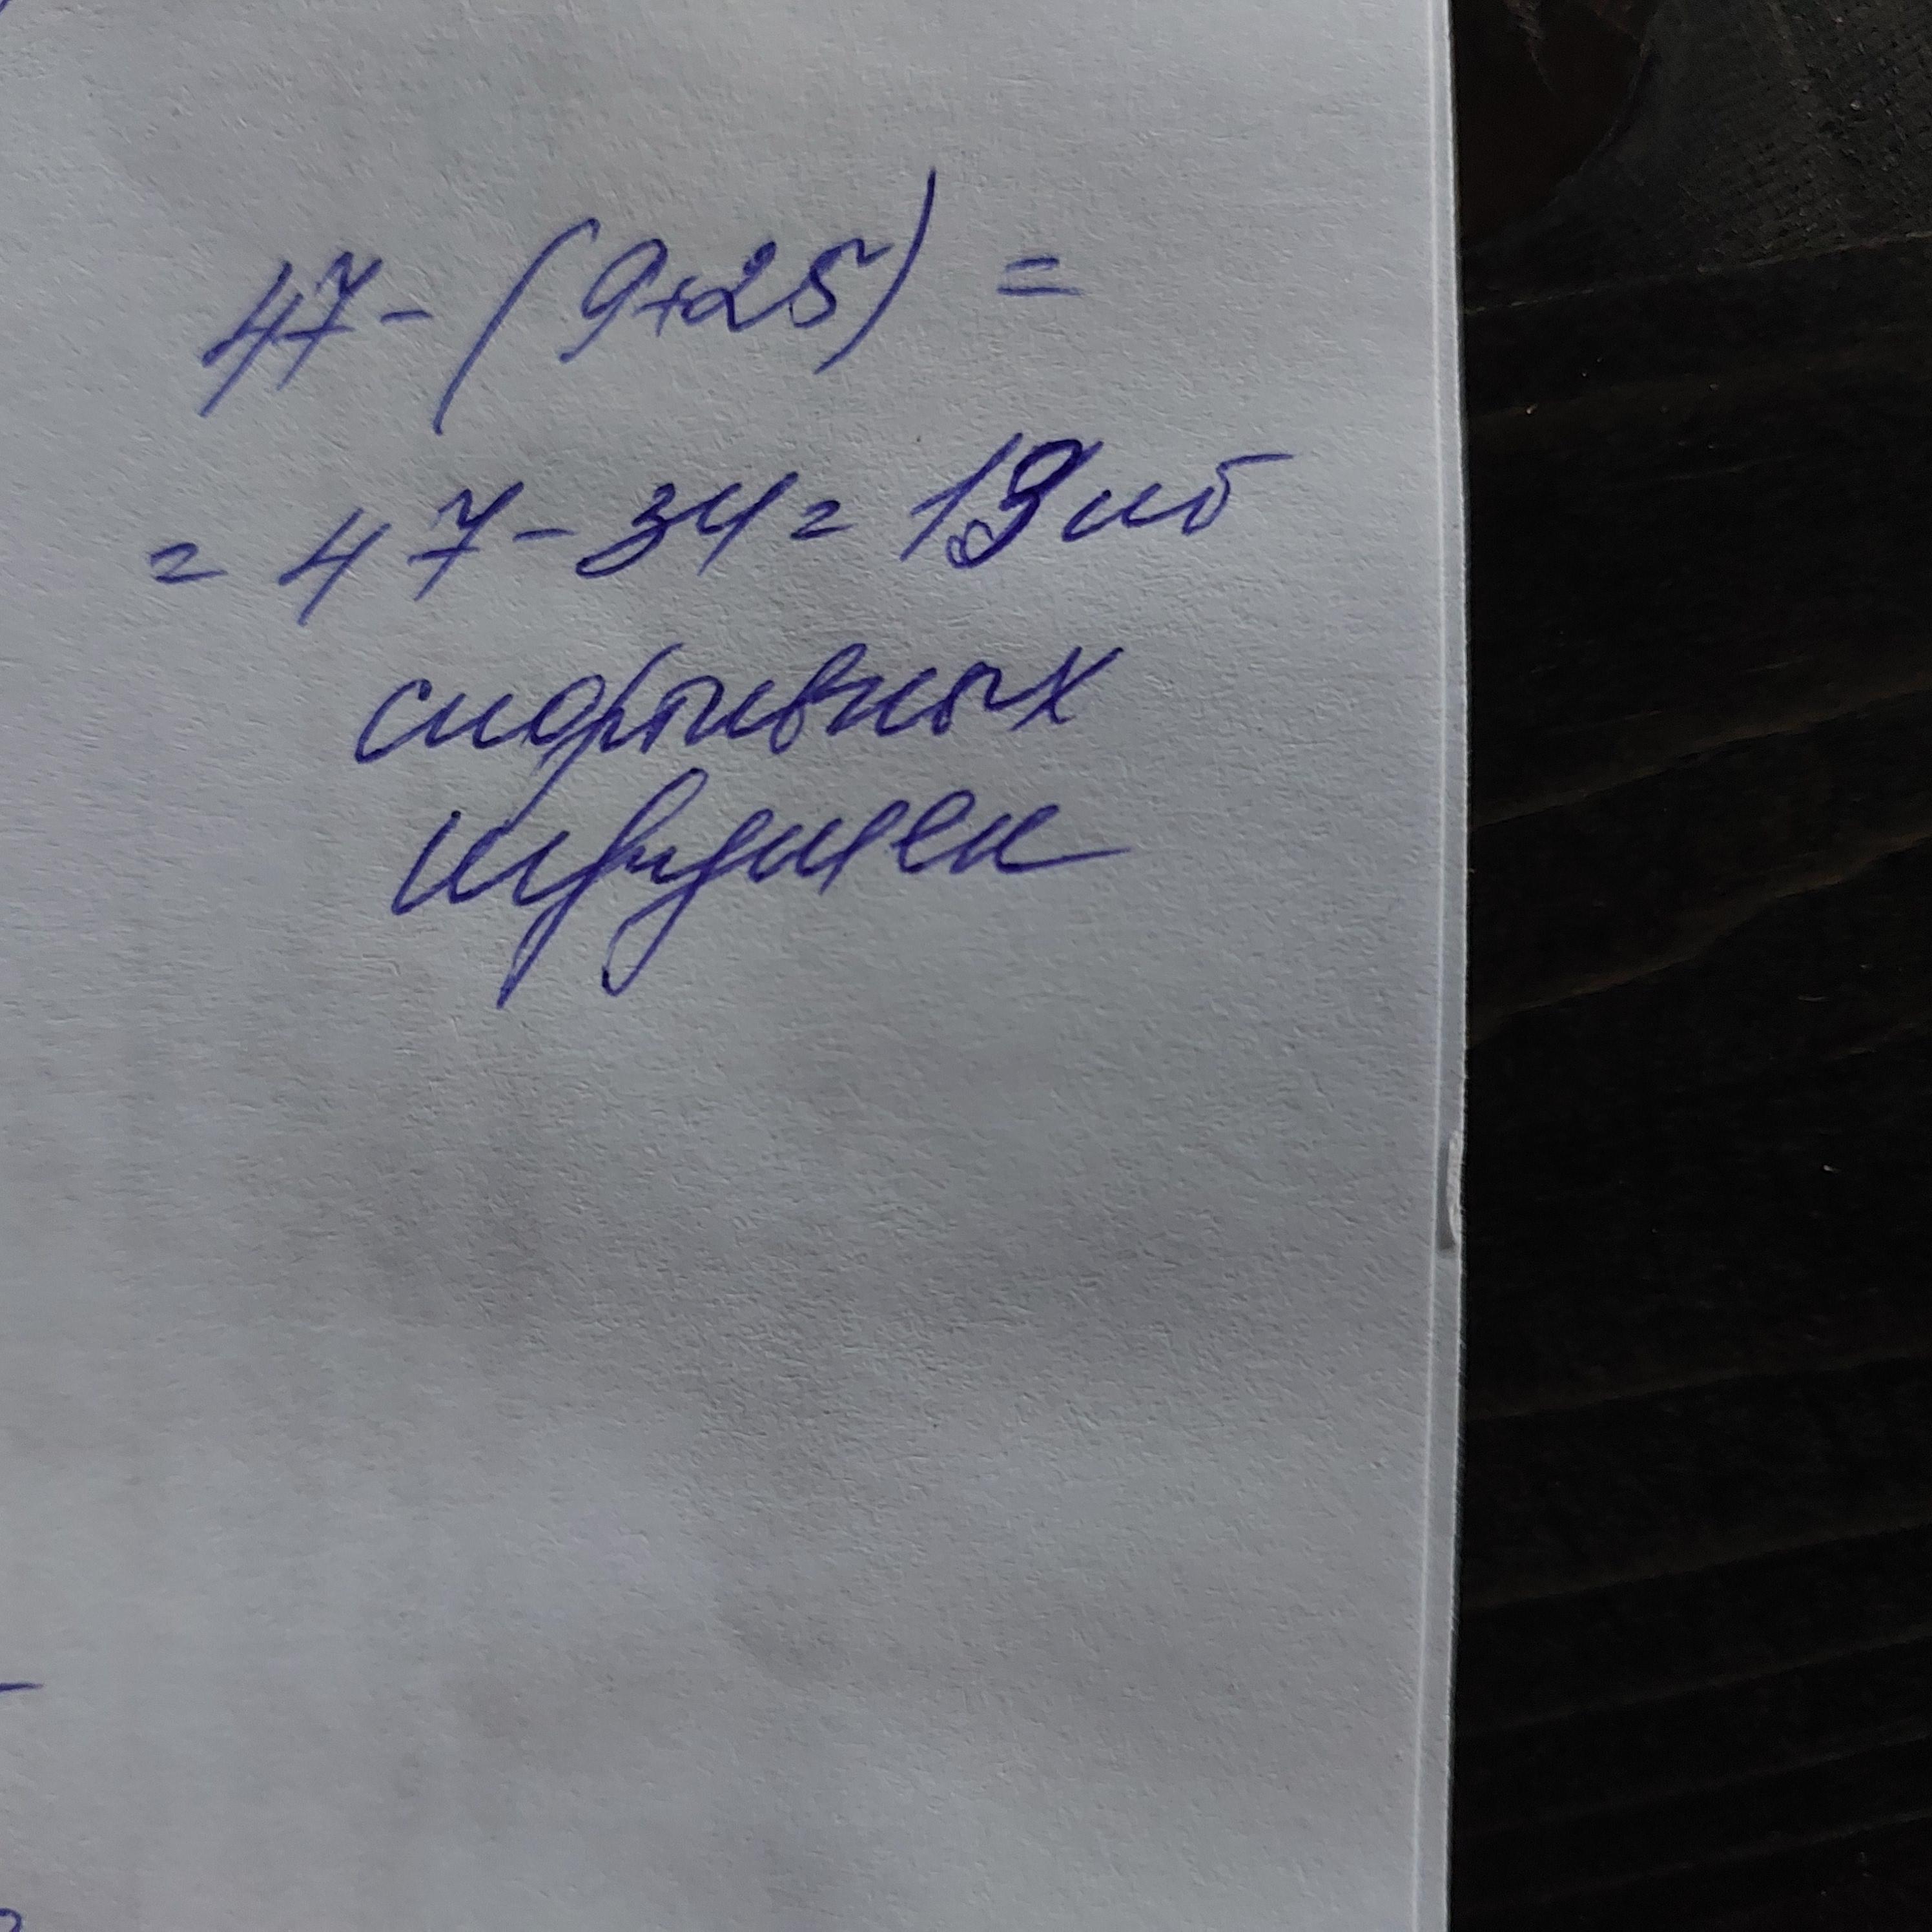 47-(9+25)=
=47-34=13шт
спортивных
игрушек